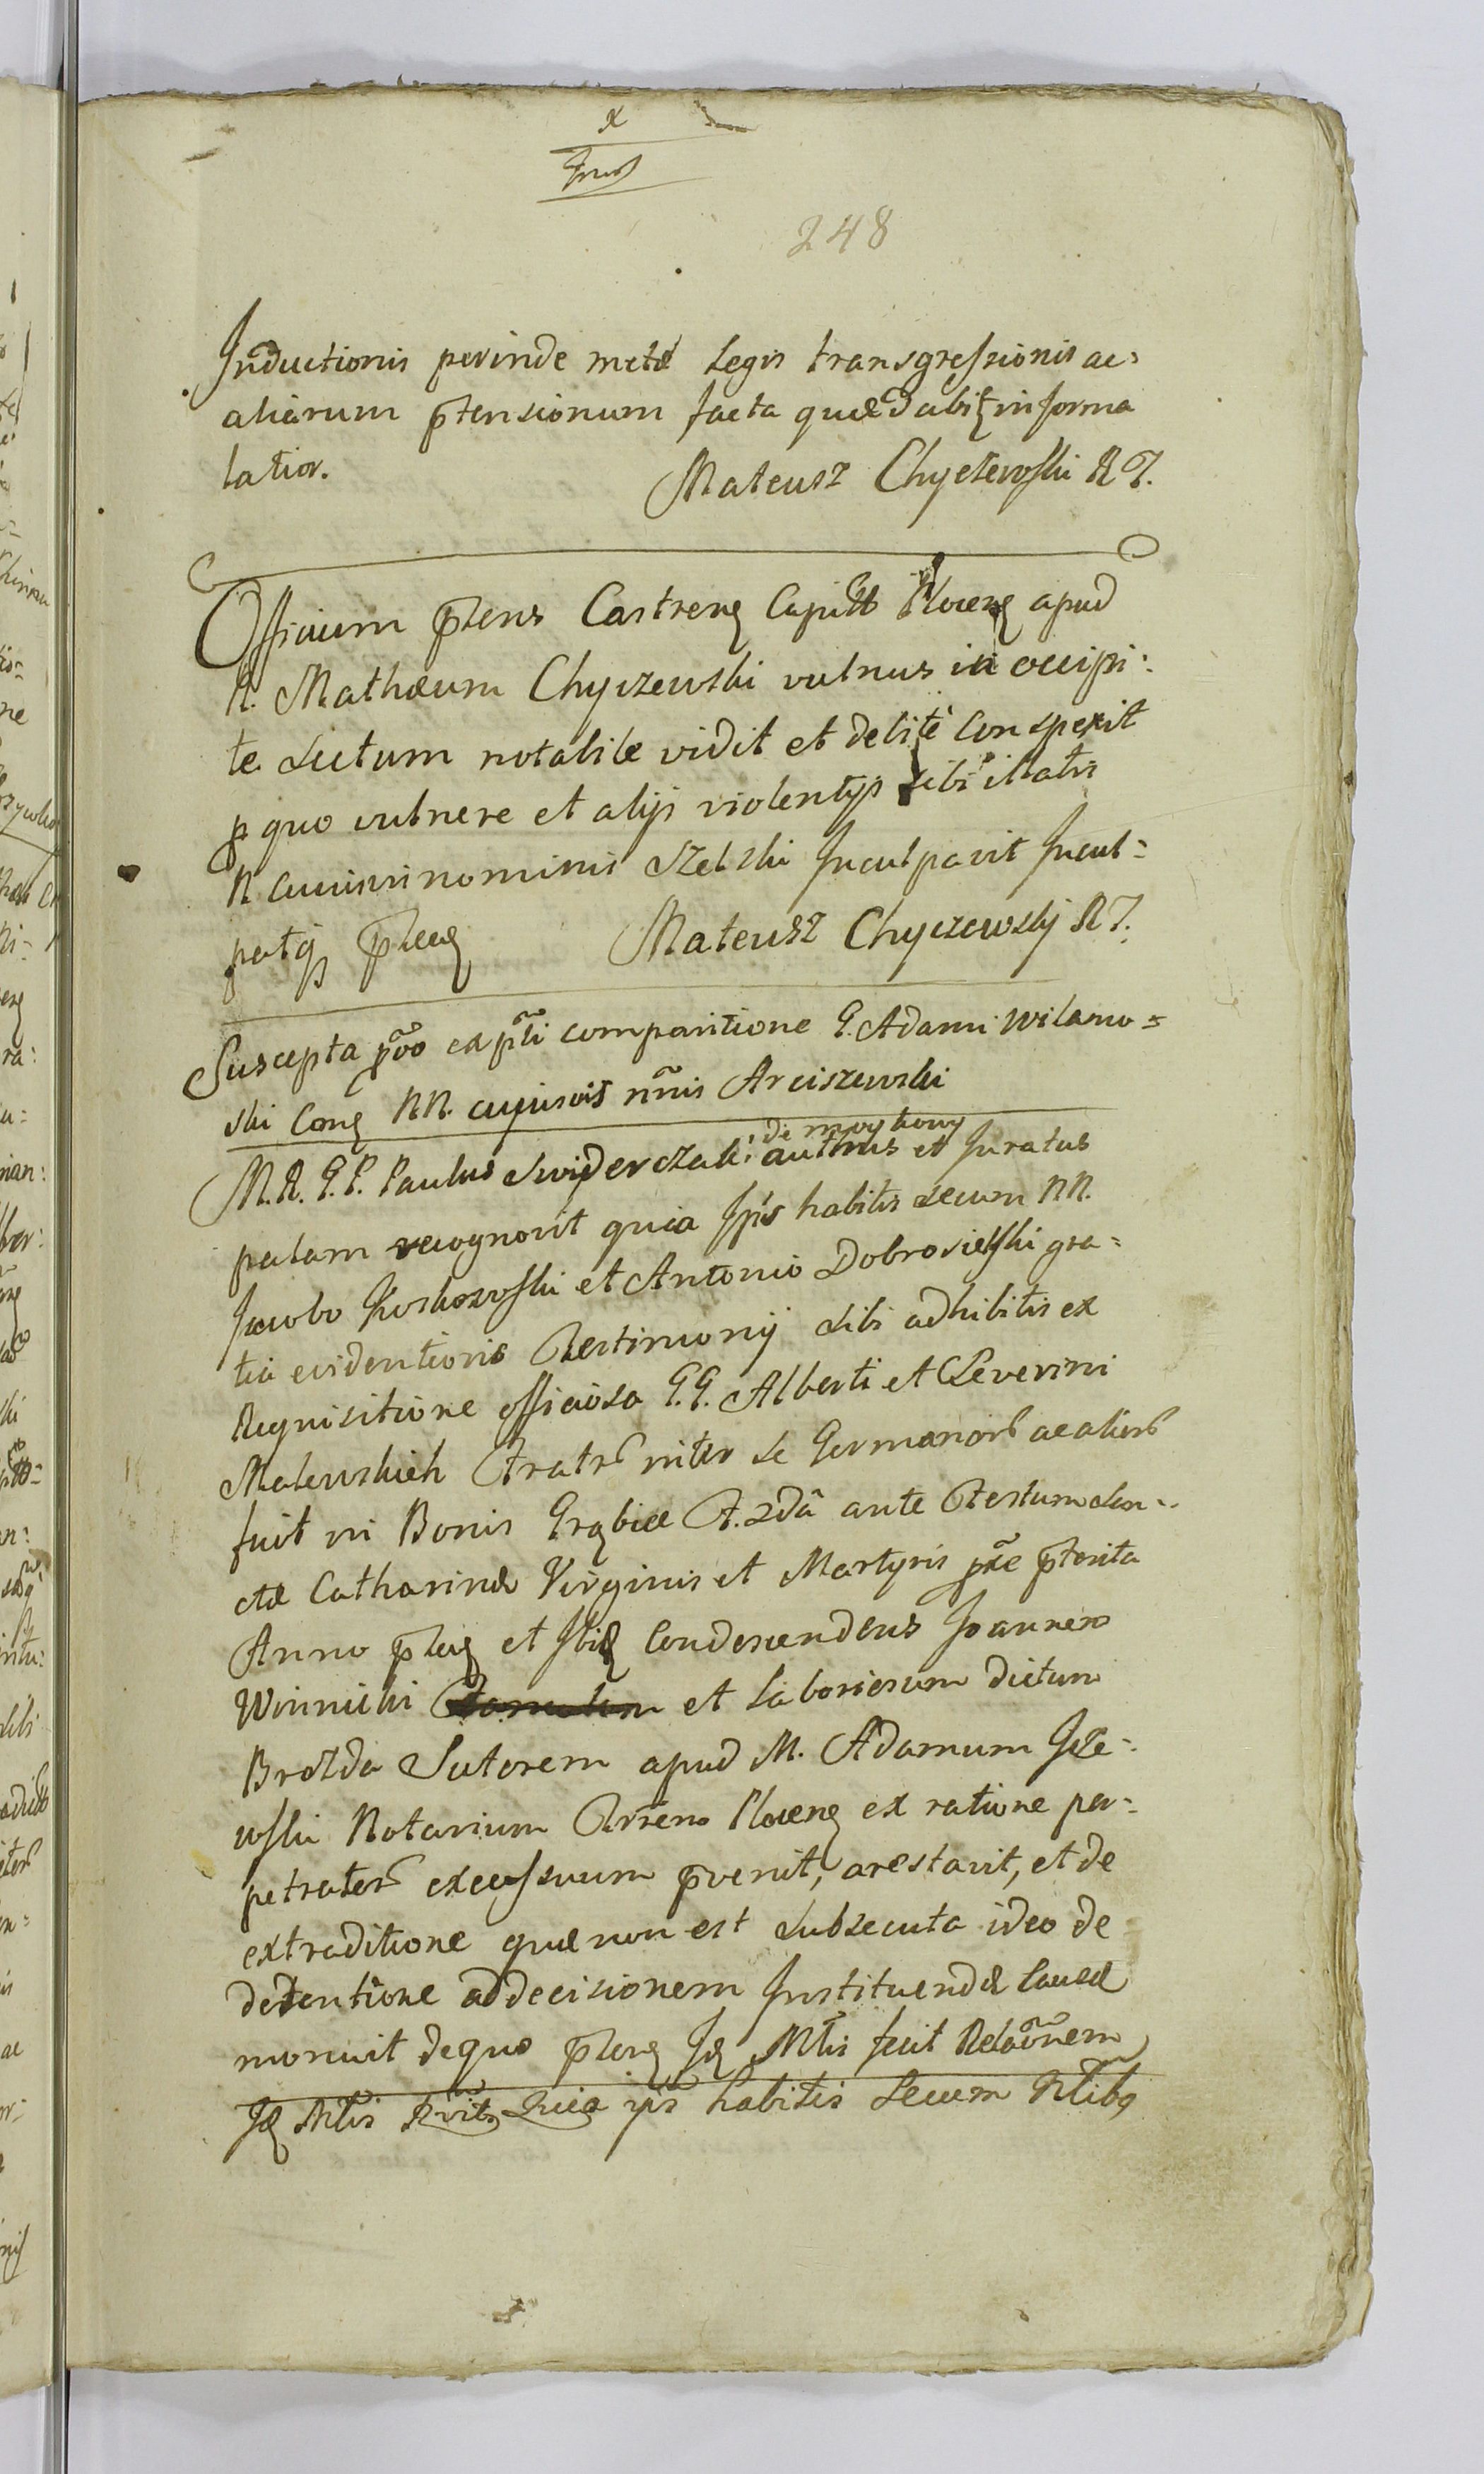 248
Inductionis perinde metæ Legis transgressionis ac:
aliarum ptensionum facta quæ dabit in forma
latior. Mateusz Chyczewski RT.
Officium ptens Castrens Capitt Plocens apud
N. Mathæum Chyczewski vulnus in occipi:
te Sectum notabile vidit et debite conspexit
p quo vulnere et alijs violentijs sibi illatis
N cuiusvis nominis Szelski Inculpavit Incul=
patq ptens Mateusz Chyczewskj RT.
Suscepta pvo ex pti comparitione G. Adami Wilamo=
ski Cong NN. cujusvis nnis Arciszewski
M.R.G.P. Paulus Swiderczak: de
authus et Juratus
palam recognovit quia Ipis habitis secum NN.
Jacobo Koskowski et Antonio Dobrosielski gra=
tia evidentioris Testimonij sibi adhibitis ex
Requisitione officiosa G.G. Alberti et Severini
Malewskich Fratr inter se Germanor ac alior
fuit in Bonis Grąbiec F. 2da ante Festum San=
ctæ Catharinæ Virginis et Martyris pxe pterita
Anno ptens et Ibid Condescendens Joannem
Winnicki et Laboriosum dictum
Brozda Sutorem apud M. Adamum Jeze=
wski Notarium Terrens Plocens ex ratione per=
petrator excessuum pvenit, arestavit, et de
extraditione quæ non est subsecuta ideo de
detentione ad decisionem Instituendæ Causæ
monuit de quo ptens Id Mtis fecit Relaonem
Id Mtis Rvit Quia ipis habitis Secum Nlibq